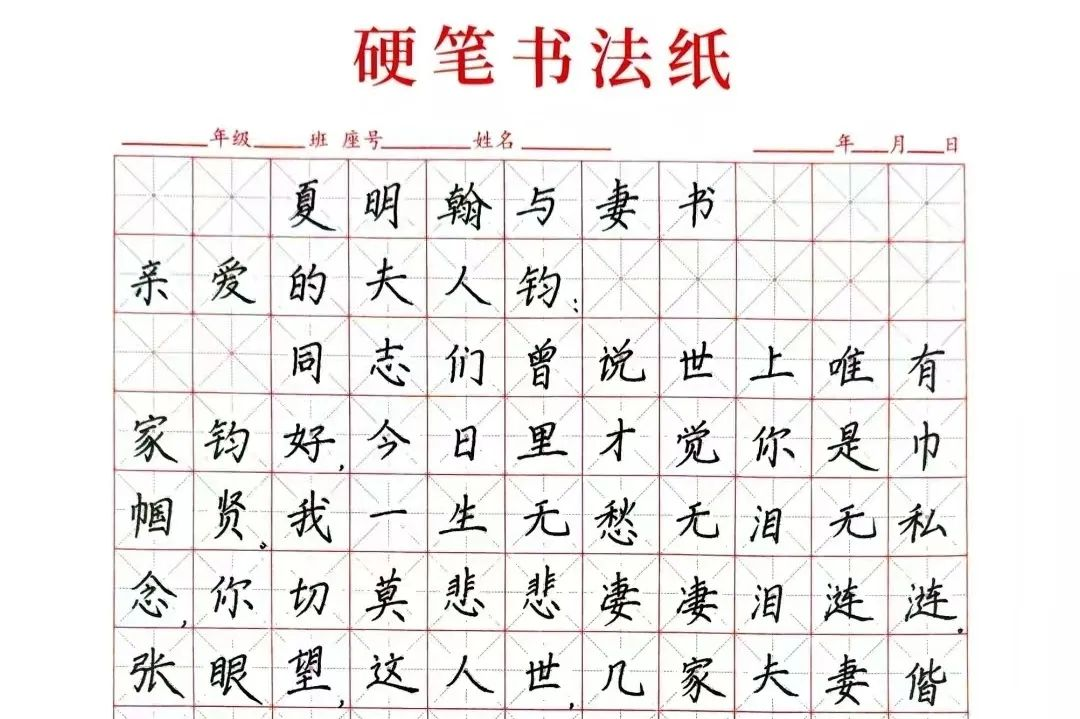 硬笔书法纸
____年级____班 座号______姓名______ ____年__月__日
夏明翰与妻书
亲爱的夫人钧:
同志们曾说世上唯有
家钧好,今日里才觉你是巾
帼贤。我一生无愁无泪无私
念,你切莫悲悲凄凄泪涟涟。
张眼望,这人世,几家夫妻偕